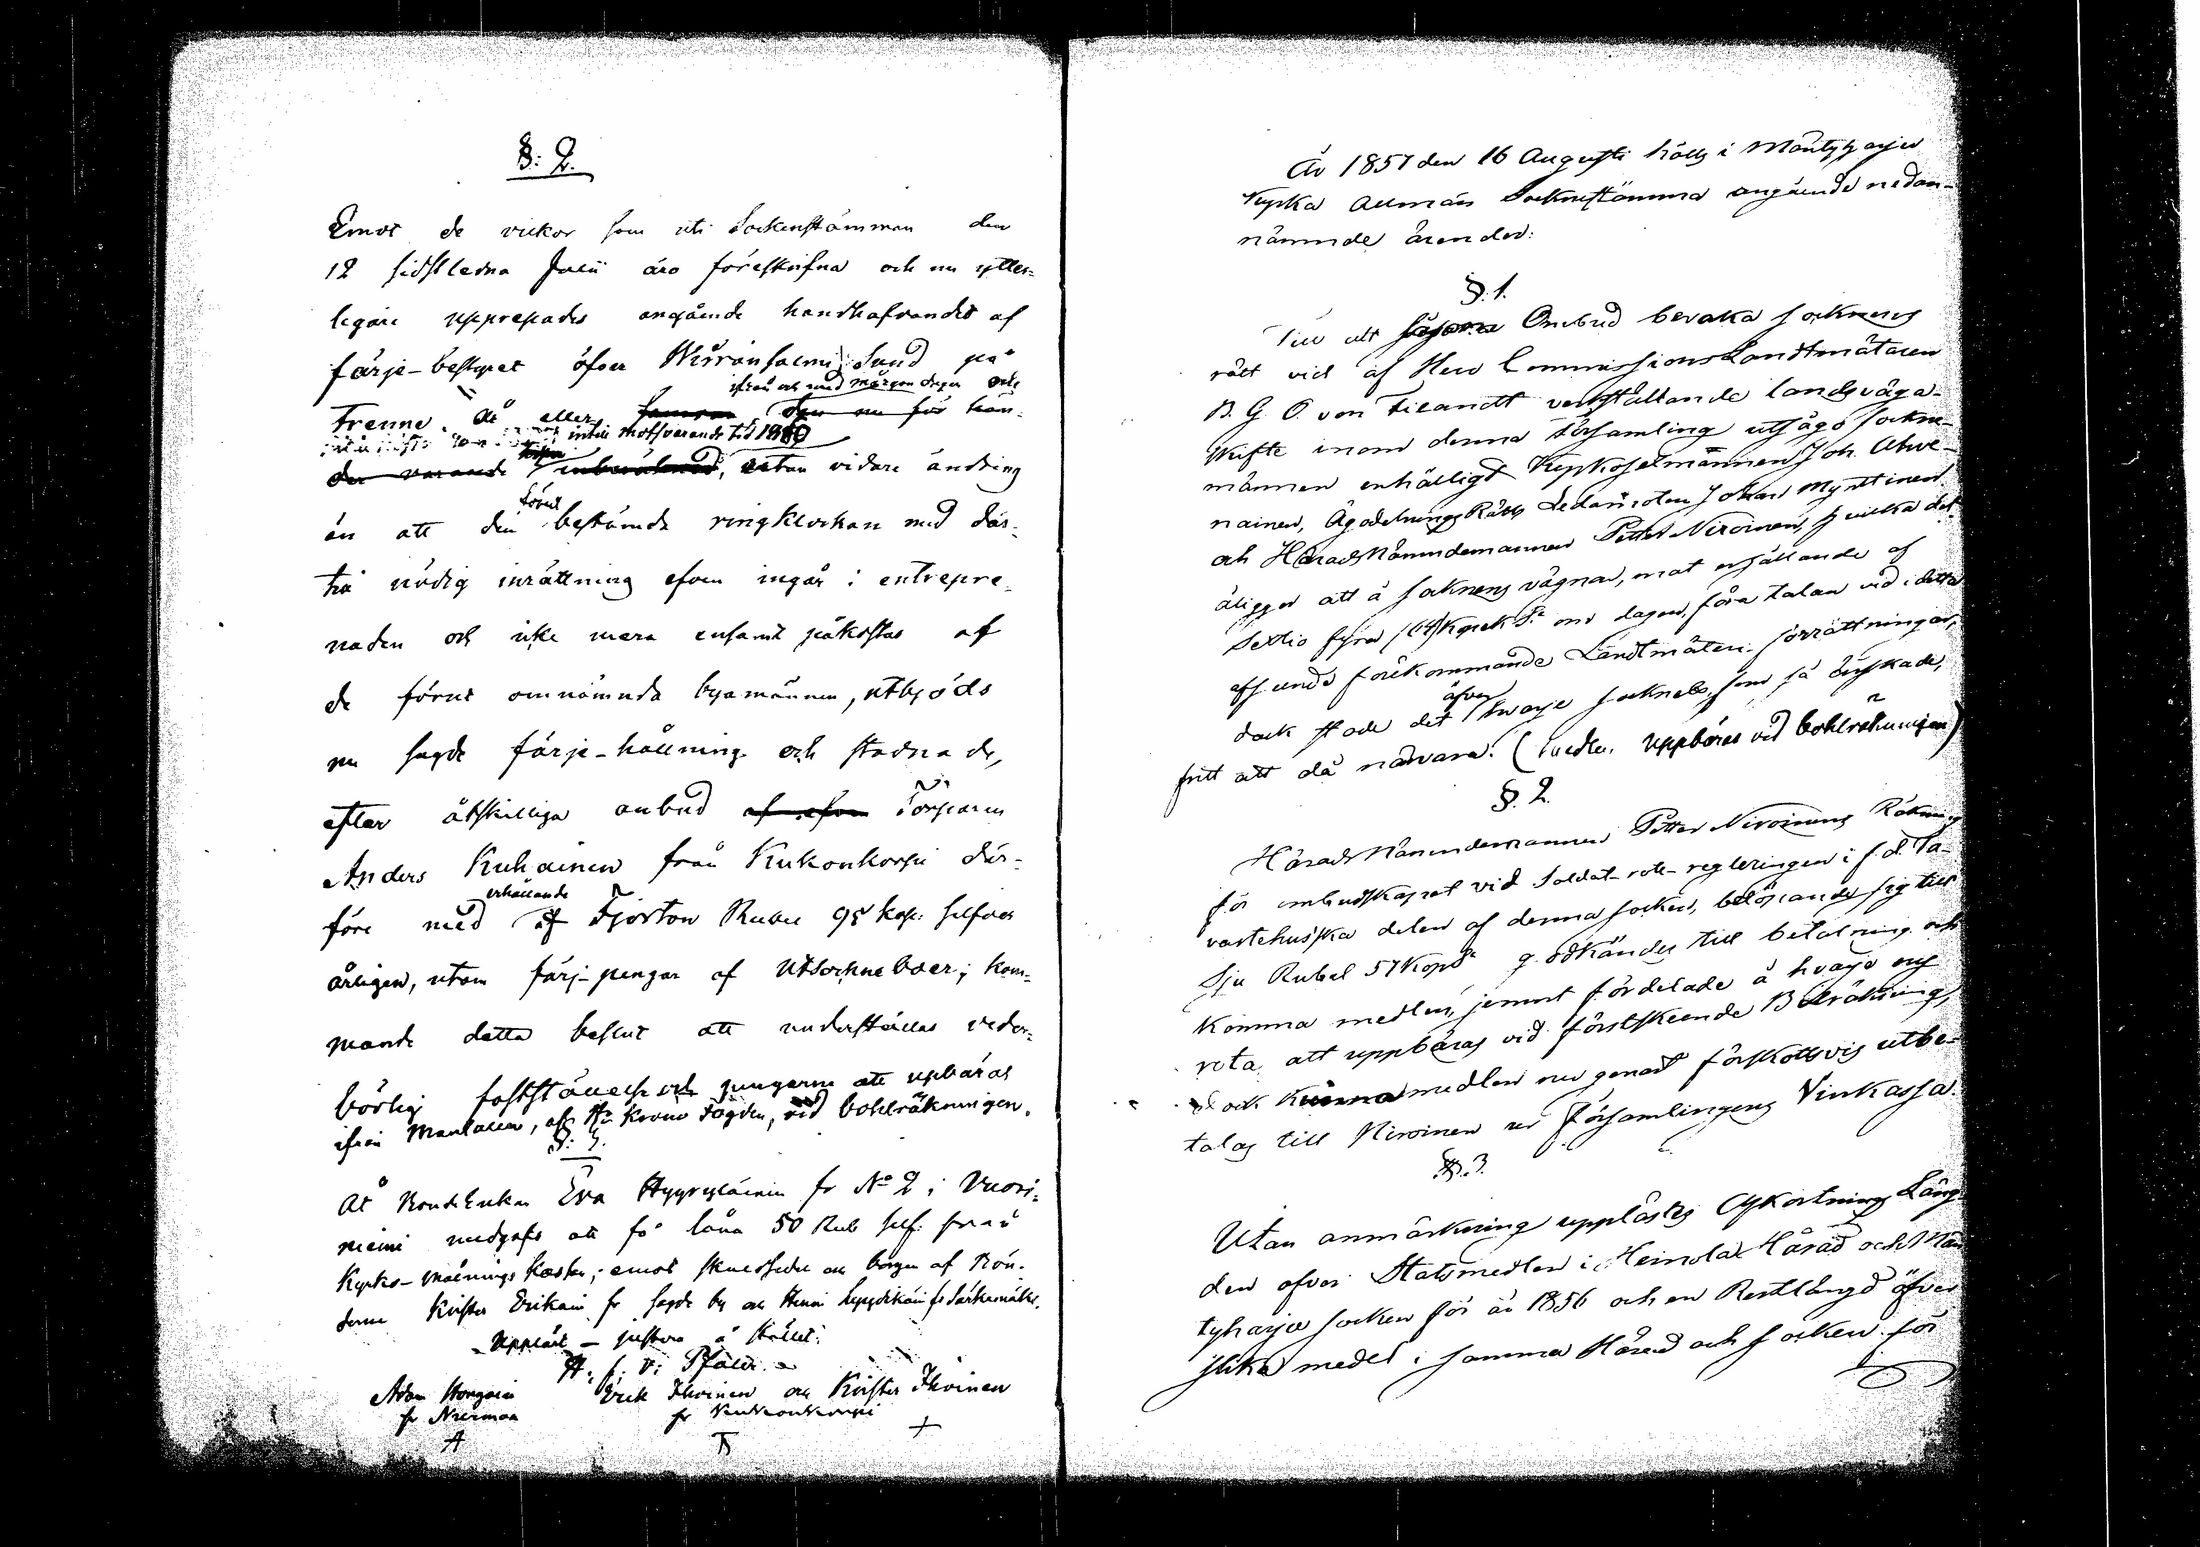 §: 2.
Emot de vilkor som uti Sockenstämman den
12 sidstledna Julii äro föreskrifna och nu ytter-
ligare upprepades angående handhafvandet af
färje-bestyret öfver Wirransalmi Sund på
ifrån och med morgon dagen och
Trenne år eller samma den nu för hän-
intill motsvarande tid 1860
der varande inberäknad, utan vidare ändring
förut
än att den bestämda ringklockan med der-
till nödig inrättning äfven ingår i entrepre-
naden och icke mera ensamt påkostas af
de förut omnämnda byamännen, utbjöds
nu sagde färje-hållning och stadnade,
efter åtskilliga anbud af äfven Torparen
Anders Kuhainen från Kukonkorpi der-
erhållande
före med af Fjorton Rubel 95 kop: silfver
årligen, utom färj-pengar af Utsockneboer; kom-
mande detta beslut att underställas veder-
börlig fastställelse och pengarne att upbäras
ifrån Mantalen, af Hr Krono Fogden, vid bohlräkningen.
§: 3.
At Bond Enkan Eva Hyyryläinen fr No 2 i Vuori-
niemi medgafs att få låna 50 Rub silf: från
Kyrko-Målnings Kassan; emot skuldsedel och borgen af Bön-
derne Krister Erikäin fr sagde by och Henni Lyyydikäin fr Särkemäki.
Uppläst - justera å stället:
A. f. v: Pfaler
Adam Hongain Erik Ihoinen och Krister Ihoinen
fr Nurmaa fr Kukonkorpi
År 1857 den 16 Augusti hölls i Mäntyharju
Kyrka Allmän Socknestämma angående nedan-
nämnde ärender:
§. 1.
Till att såsom Ombud bevaka socknens
rätt vid af Herr Commissions Landtmätaren
B. G. O. von Fieandt verkställande landsväga-
skifte inom denna Församling utsågo sockne-
männen enhälligt Kyrkoselmannen Joh. Ahve-
nainen, Ägodelnings Rätts Ledamoten Johan Mynttinen
och Härads Nämndemannen Petter Niroinen, hvilka det
åligger att å socknens vägnar, mot erhållande af
Sextio fyra (64) Kopek Sr om dagen, föra talan vid i detta
afseende förekommande Landtmäteri förrättningar,
äfven
dock stode det hvarje sockneb., som så önskade,
fritt att då närvara. (medlen uppbäras vid bohlräkningen)
§. 2.
Härads Nämndemannen Petter Niroinens Räkning
för ombudskapet vid Soldat-rote-regleringen i f.d. Ta-
vastehus'ska delen af denna socken, belöpande sig till
Sju Rubel 57 Kop Sr godkändes till betalning och
komma medlen, jemnt fördelade å hvarje ny
rota, att uppbäras vid förstskeende Bolräkning,
dock kunna medlen nu genast förskottsvis utbe-
talas till Niroinen ur Församlingens Vinkassa.
§. 3.
Utan anmärkning upplästes Afkortnings Läng-
den öfver Statsmedlen i Heinola Härad och Män
tyharju socken för år 1856 och en Restlängd öfver
slika medel i samma Härad och socken för